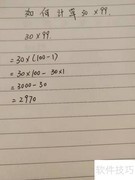 如何计算30×99
30×99
=30×(100-1)
=30×100-30×1
=3000-30
=2970
软件技巧